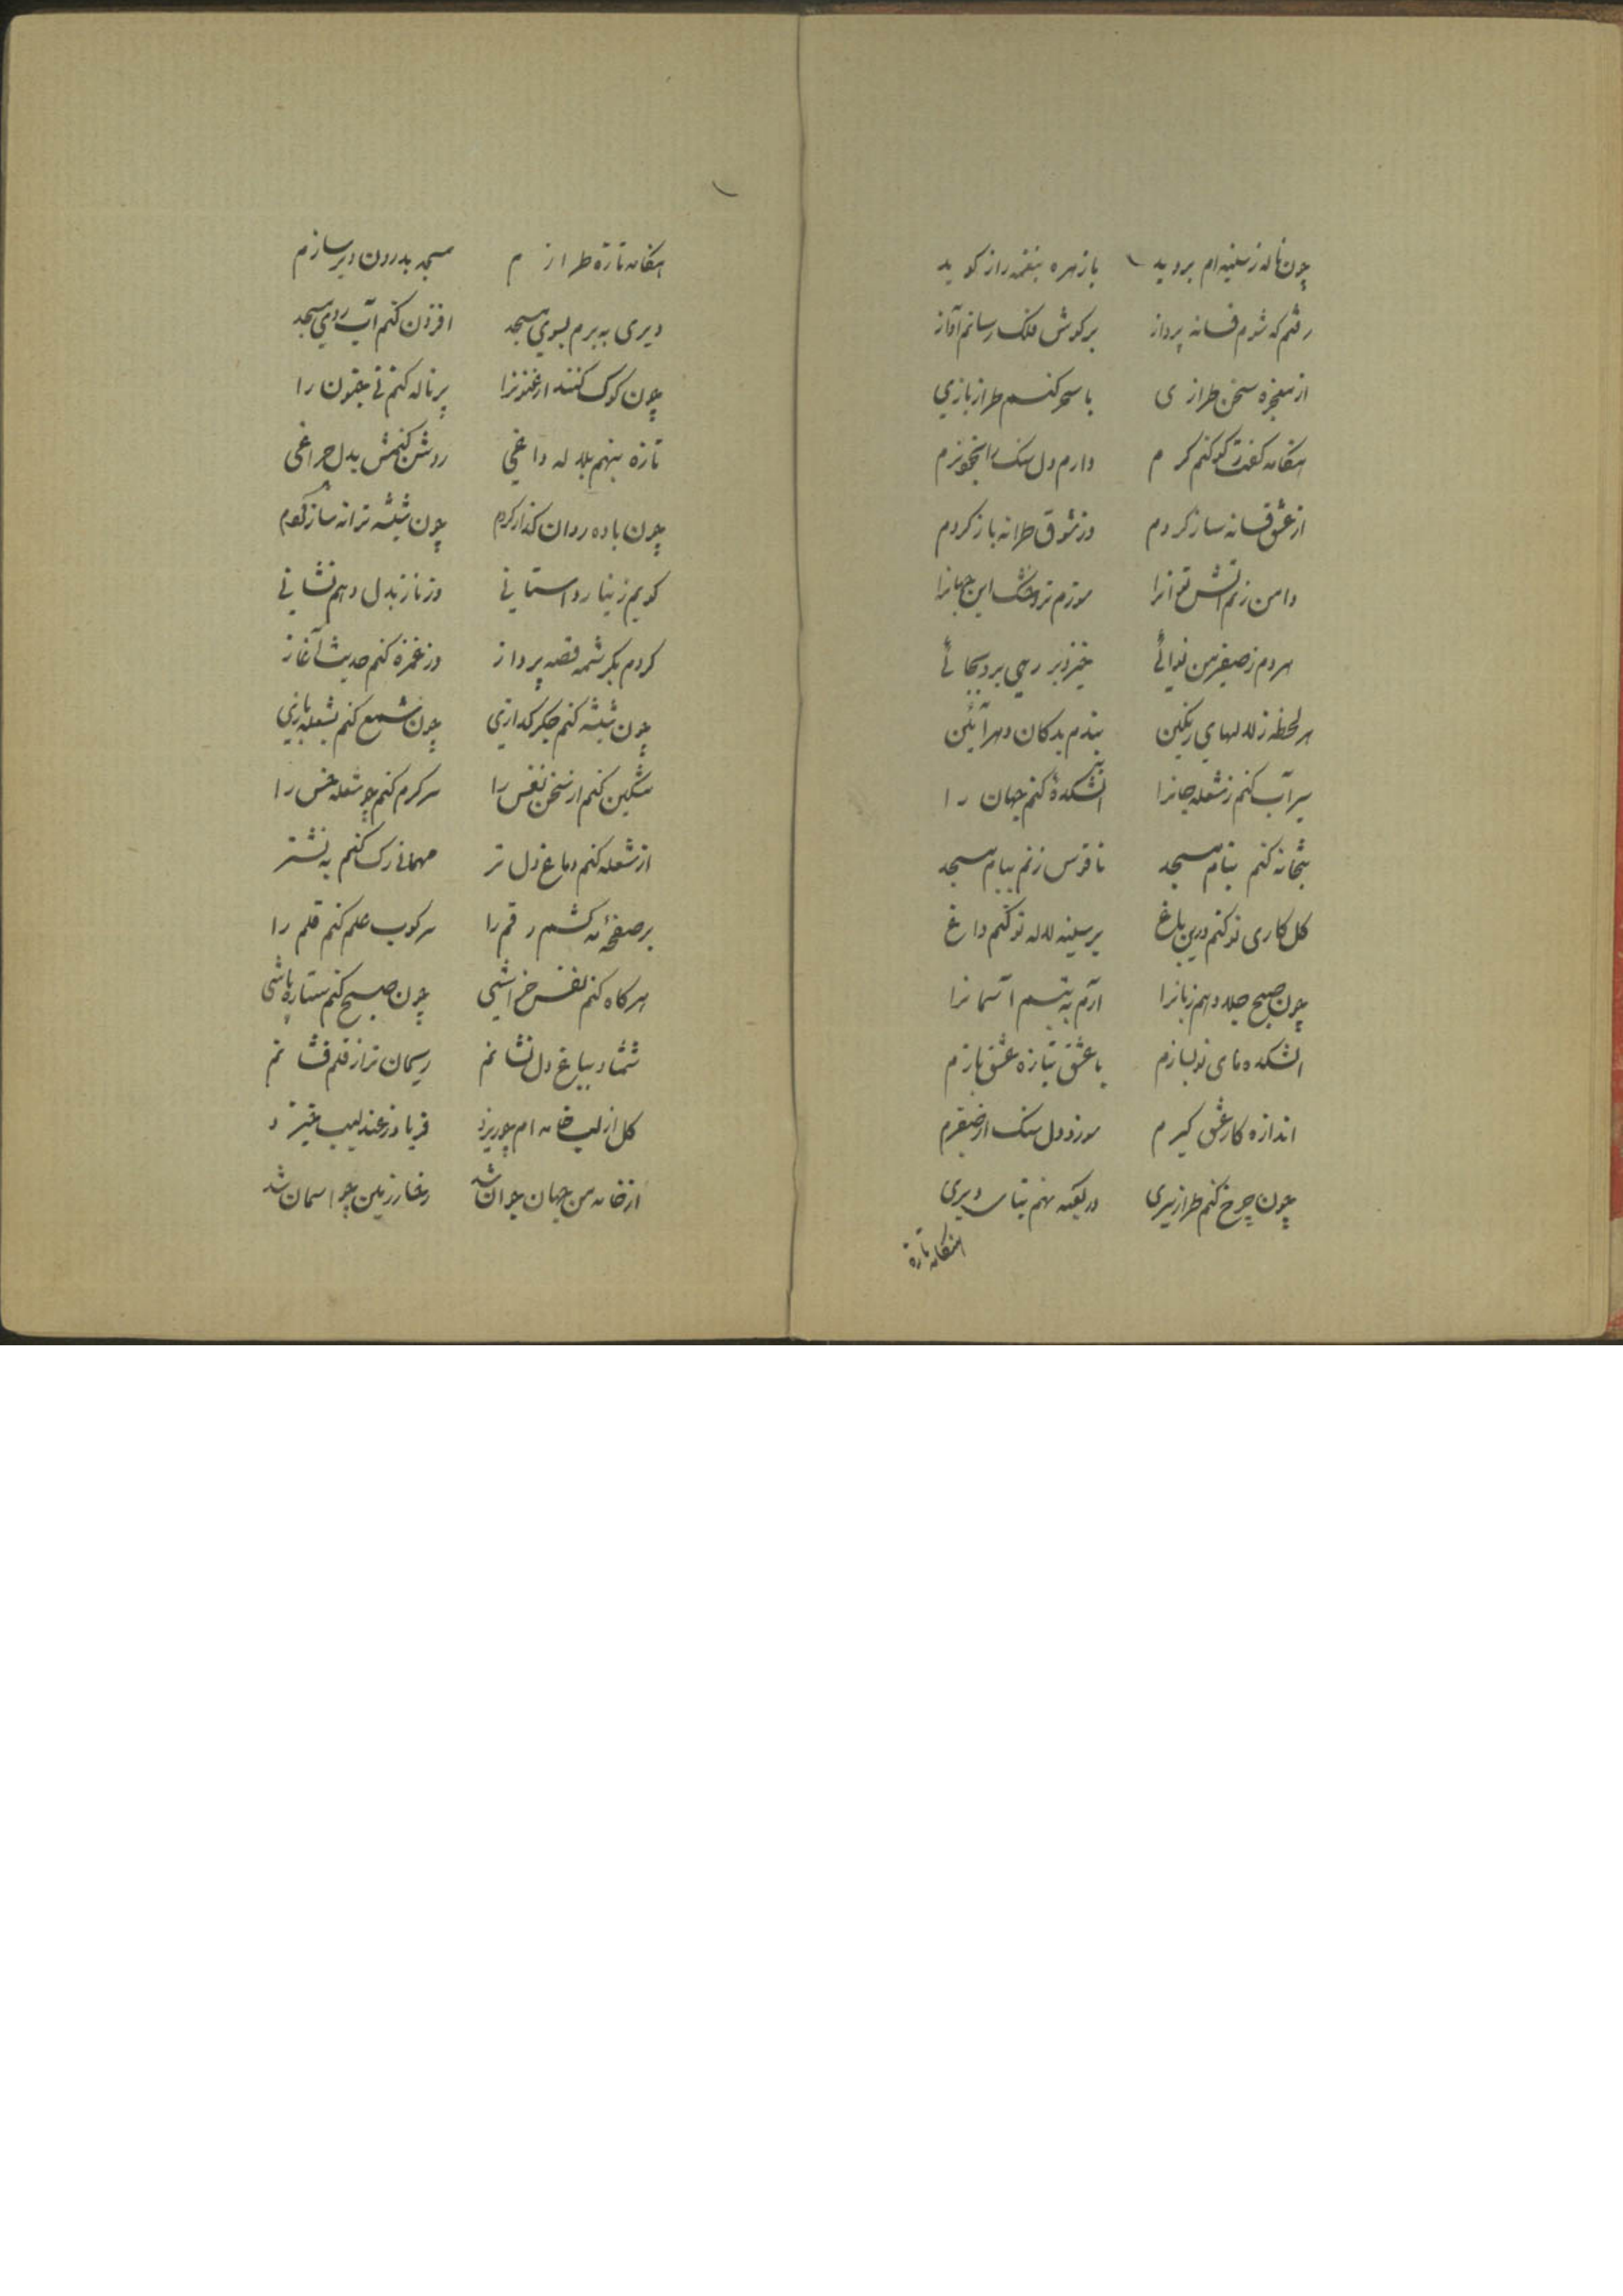 چون ناله ز سینه ام بروید با زهره بنغمه راز گوید
رفتم که شوم فسانه پرداز بر گوش فلک رسانم آواز
از معجزه سخن طرازی با سحر کنم طراز بازی
هنگامه گفت گو کنم گرم دارم دل سنگ را
از عشق فسانه ساز کردم وز شوق طرانه باز کردم
دامن زنم آتش نوانرا سوزم تر و خشک این جهانرا
هر دم ز صفیر من نوائی خیزد بر رهی بر دبجائی
هر لحظه ز لالهای رنگین بندم بدکان دهر آئین
سیرآب کنم ز شعله جانرا آتشکدۀ کنم جهان را
بتخانه کنم بنام مسجد ناقوس زنم ببام مسجد
گل کاری نو کنم درین باغ بر سینه لاله نو کنم داغ
چون صبح جلا دهم زبانرا آرم به تبسم آسمانرا
آتشکده های نو بسازم با عشق بتازه عشق بازم
اندازه کار عشق گیرم سوزد دل سنگ از صفیرم
چون چرخ کنم طراز سیری در کعبه نهم بنای دیری
هنگامه تازه
هنگامه تازه طرازم مسجد بدرون دیر سازم
دیری به برم بسوی مسجد افزون کنم آب روی مسجد
چون کوک کنند ارغنونرا پر ناله کنم نی جنون را
تازه بنهم بلاله داغی روشن کنمش بدل چراغی
چون باده روان گداز کردم چون شیشه ترانه ساز کردم
گویم ز نیاز داستانی وز ناز بدل دهم نشانی
کردم بکرشمه قصه پرداز وز غمزه کنم حدیث آغاز
چون شیشه کنم جگر گدازی چون شمع کنم بشعله بازی
مشکین کنم از سخن نفس را سرگرم کنم چو شعله خس را
از شعله کنم دماغ دل تر مهمانی رگ کنم به نشتر
بر صفحۀ مه کشم رقم را سرکوب علم کنم قلم را
هر گاه کنم نفس خراشی چون صبح کنم ستاره پاشی
شمشاد بباغ دل نشانم ریحان تر از قلم فشانم
گل از لب خامه ام چو ریزد فریاد ز عندلیب خیزد
از خامه من جهان جوان شد رخسار زمین چو آسمان شد